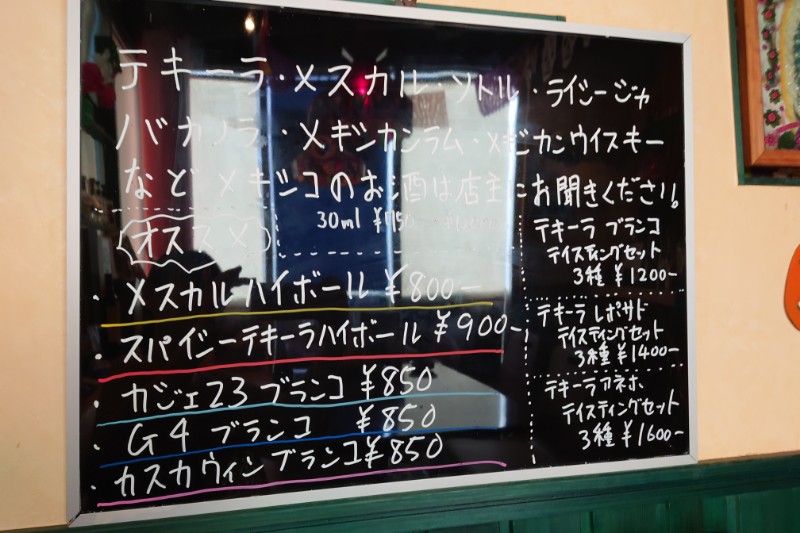 テキーラ・メスカル ソトル・ライシージャ
バカノラ・メキシカンラム・メキシカンウイスキー
などメキシコのお酒は店主にお聞きください。
30ml
オススメ
・メスカルハイボール ¥800-
・スパイシーテキーラハイボール ¥900-
・カジェ23ブランコ ¥850
・G4 ブランコ ¥850
・カスカウィンブランコ ¥850
テキーラ ブランコ
テイスティングセット
3種 ¥1200-
テキーラ レポサド
テイスティングセット
3種 ¥1400-
テキーラ アネホ
テイスティングセット
3種 ¥1600-